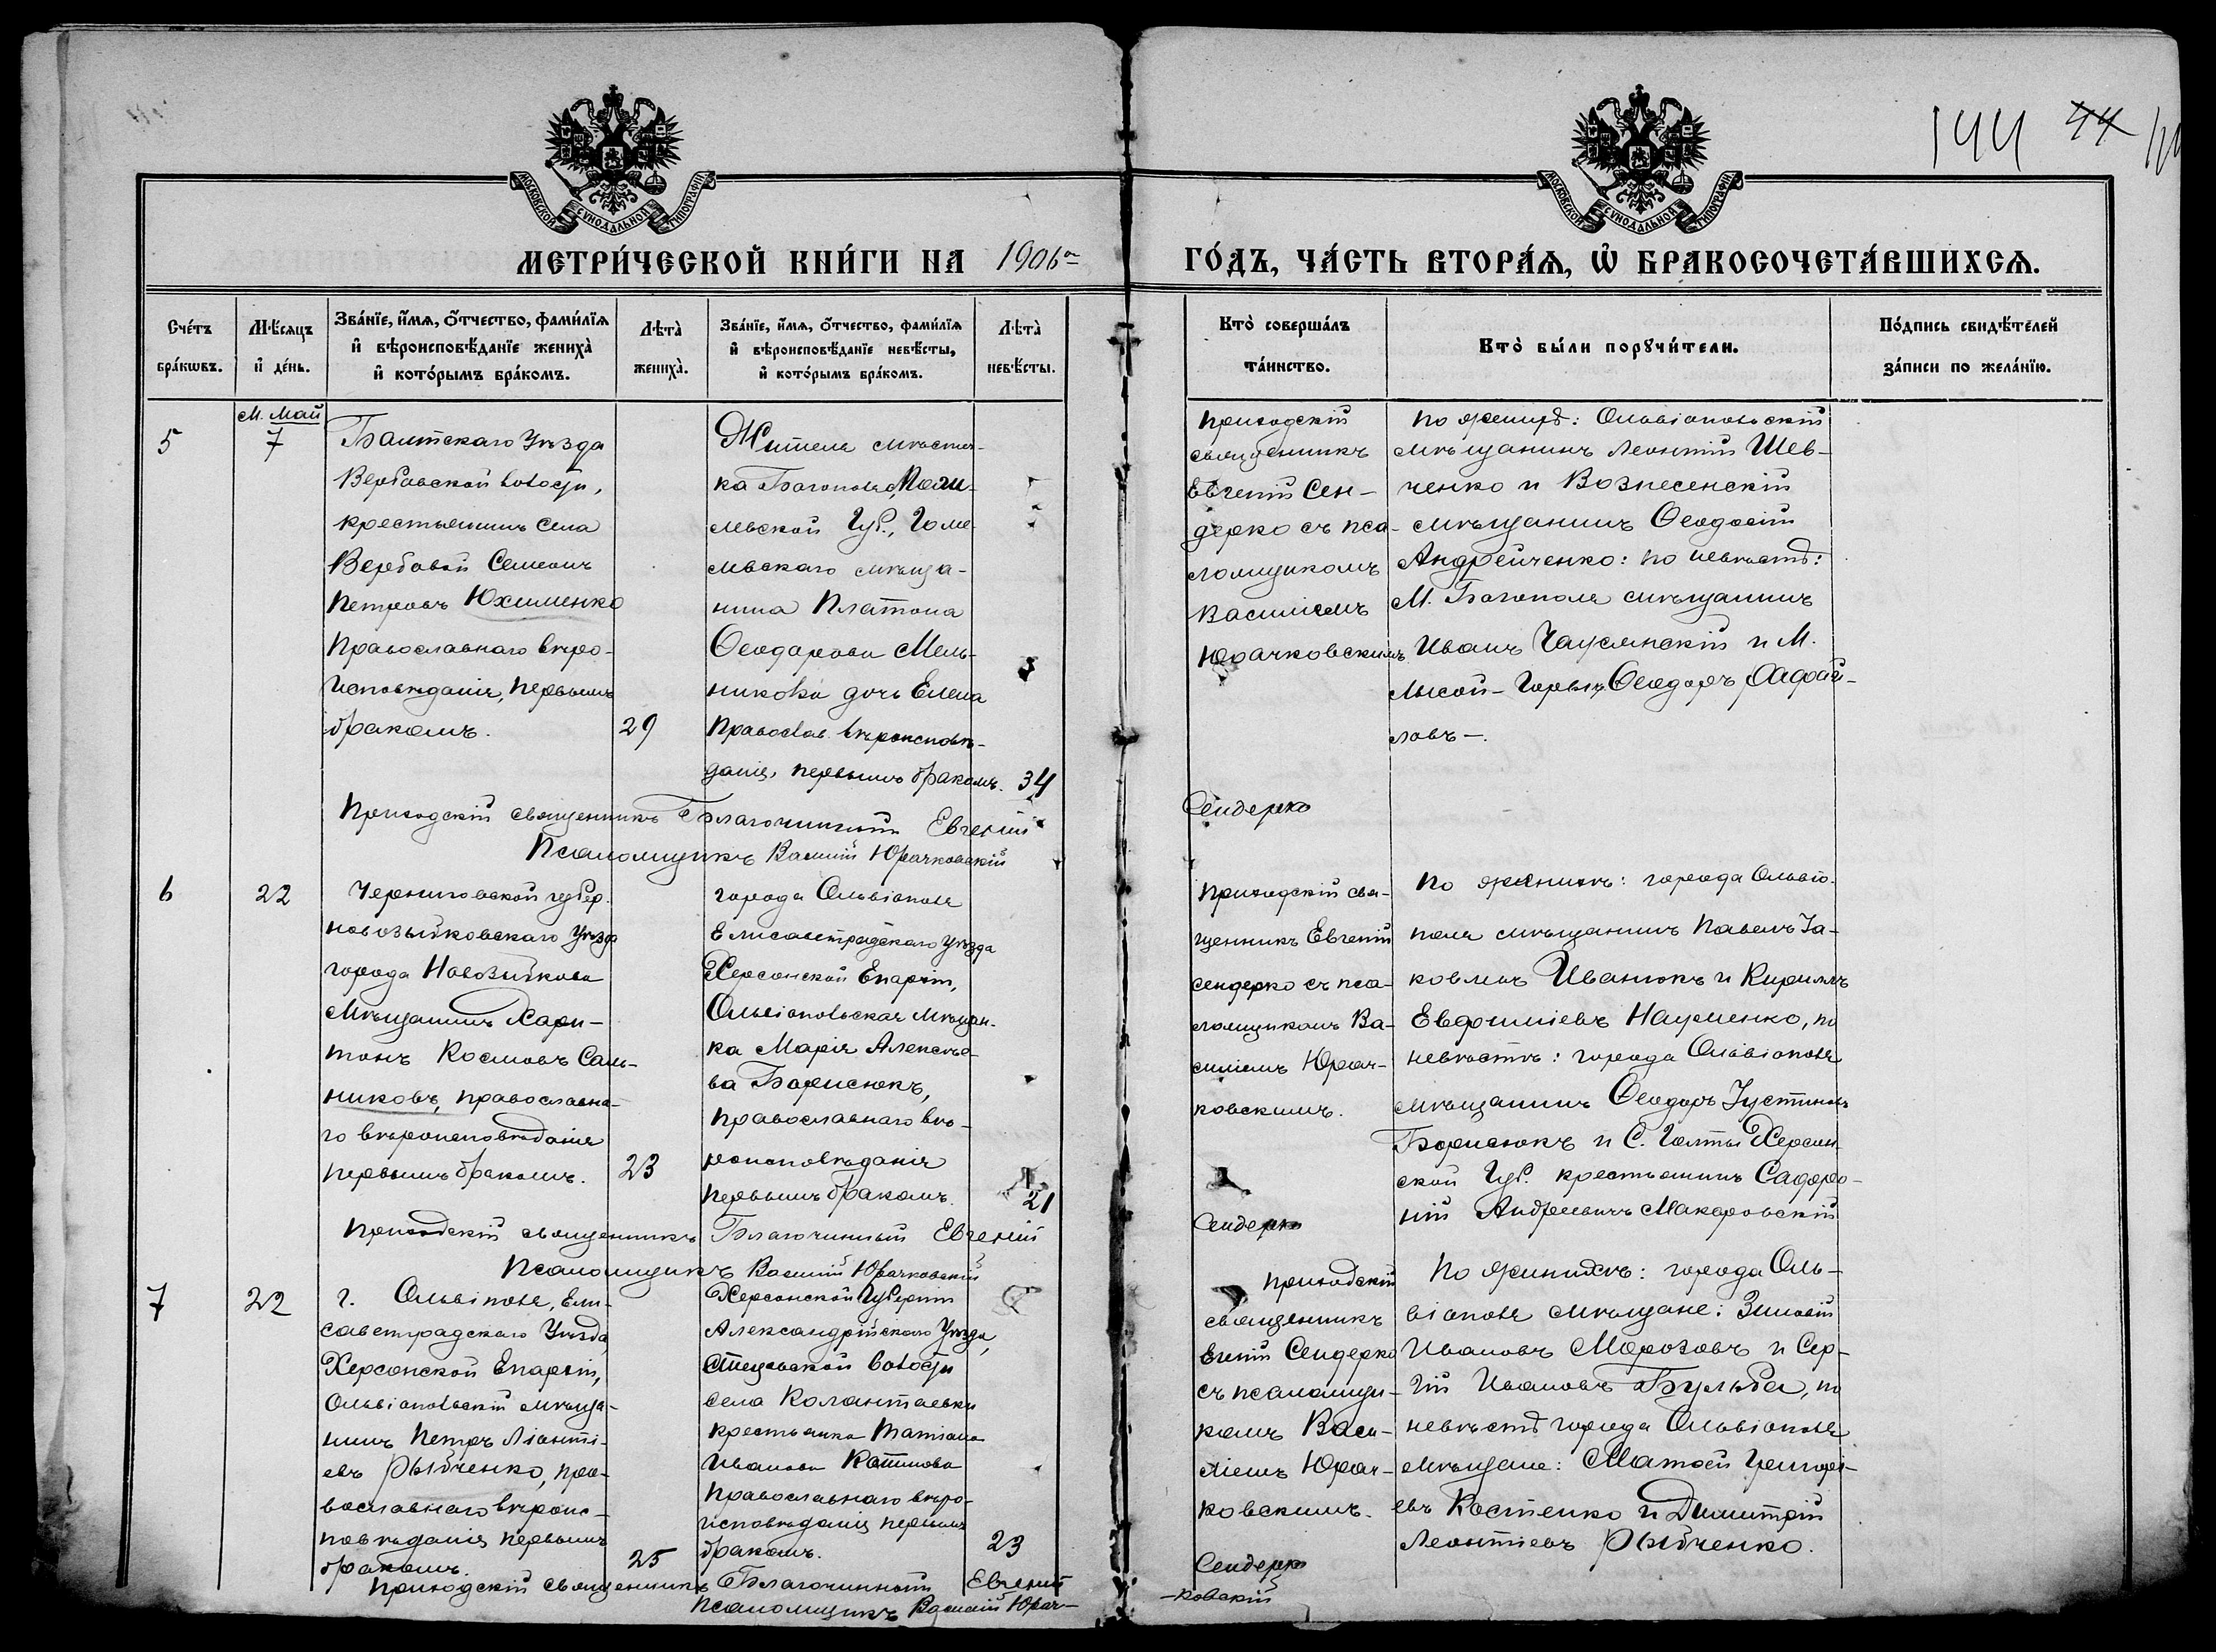 144 44
МОСКОВСКОЙ СѴНОДАЛЬНОЙ ТИПОГРАФІИ
МОСКОВСКОЙ СѴНОДАЛЬНОЙ ТИПОГРАФІИ
МЕТРИ́ЧЕСКОЙ КНИ́ГИ НА 1906 го́дъ, ча́сть втора́ѧ, ѡ҆ бракосочета́вшихсѧ.
Сче́тъ
бра́кѡвъ.
Мѣ́сѧцъ
и҆ де́нь.
Зва́нїе, и҆́мѧ, ѻ҆́тчество, фами́лїѧ
и҆ вѣроисповѣ́данїе жениха̀
и҆ кото́рымъ бра́комъ.
Лѣта̀
жениха̀.
Зва́нїе, и҆́мѧ, ѻ҆́тчество, фами́лїѧ
и҆ вѣроисповѣ́данїе невѣ́сты,
и҆ кото́рымъ бра́комъ.
Лѣта̀
невѣ́сты.
Кто̀ соверша́лъ
та́инство.
Кто̀ бы́ли порꙋчи́тели.
По́дпись свидѣ́телей
за́писи по жела́нїю.
М. Май
5
7
Балтскаго Уѣзда
Вербовской волости,
крестьянинъ села
Вербовой Семеонъ
Петровъ Юхименко
Православнаго вѣро-
исповѣданія, первымъ
бракомъ.
29
Жителя мѣстеч-
ка Богополя, Моги-
левской Губ., Гоме-
льскаго мѣща-
нина Платона
Ѳеодорова Мель-
никова дочь Елена
Православ. вѣроисповѣ-
данія, первымъ бракомъ.
34
Приходскій
священникъ
Евгеній Сен-
дерко съ пса-
ломщикомъ
Василіемъ
Юрачковскимъ
По женихѣ: Ольвіопольскій
мѣщанинъ Леонтій Шев-
ченко и Вознесенскій
мѣщанинъ Ѳеодосій
Андрейченко: по невѣстѣ:
М. Богополя мѣщанинъ
Иванъ Чауслнскій и М.
Лысой-Горы Ѳеодоръ Рафай-
ловъ —.
Приходскій священникъ Благочинный Евгеній Сендерко
Псаломщикъ Василій Юрачковскій
6
22
Черниговской губер.
Новозыбковскаго Уѣзда
города Новозыбкова
Мѣщанинъ Хари-
тонъ Космовъ Саль-
никовъ, православна-
го вѣроисповѣданія
первымъ бракомъ.
23
города Ольвіополя
Елисаветградскаго Уѣзда
Херсонской Епархіи,
Ольвіопольская Мѣщан-
ка Марія Алексѣе-
ва Борисюкъ,
православнаго вѣ-
роисповѣданія
первымъ бракомъ.
21
Приходскій свя-
щенникъ Евгеній
Сендерко съ пса-
ломщикомъ Ва-
силіемъ Юрач-
ковскимъ.
По женихѣ: города Ольвіо-
поля мѣщанинъ Павелъ Іа-
ковлевъ Иванюкъ и Кириллъ
Евфиміевъ Науменко, по
невѣстѣ: города Ольвіополя
мѣщанинъ Ѳеодоръ Іустиновъ
Борисюкъ и С. Голты Херсон-
ской Губ. крестьянинъ Сафро-
ній Андреевичъ Макаровскій
Приходскій священникъ Благочинный Евгеній Сендерко
Псаломщикъ Василій Юрачковскій
7
22
г. Ольвіополя, Ели-
саветградскаго Уѣзда,
Херсонской Епархіи,
Ольвіопольскій мѣща-
нинъ Петръ Ліонті-
евъ Рыбченко, пра-
вославнаго вѣроис-
повѣданія первымъ
бракомъ.
25
Херсонской Губерніи
Александрійскаго Уѣзда,
волости
села Колантаевки
крестьянка Татіана
Иванова
Православнаго вѣро-
исповѣданія первымъ
бракомъ.
23
Приходскій
священникъ
Евгеній Сендерко
съ псаломщи-
комъ Васи-
ліемъ Юрач-
ковскимъ.
По женихѣ: города Оль-
віополя мѣщане: Зиновій
Ивановъ Морозовъ и Сер-
гій Ивановъ Бульба, по
невѣстѣ города Ольвіополя
мѣщане: Матѳей Григорі-
евъ Костенко и Димитрій
Леонтіевъ Рыбченко.
Приходскій священникъ Благочинный Евгеній Сендерко
Псаломщикъ Василій Юрач-
-ковскій